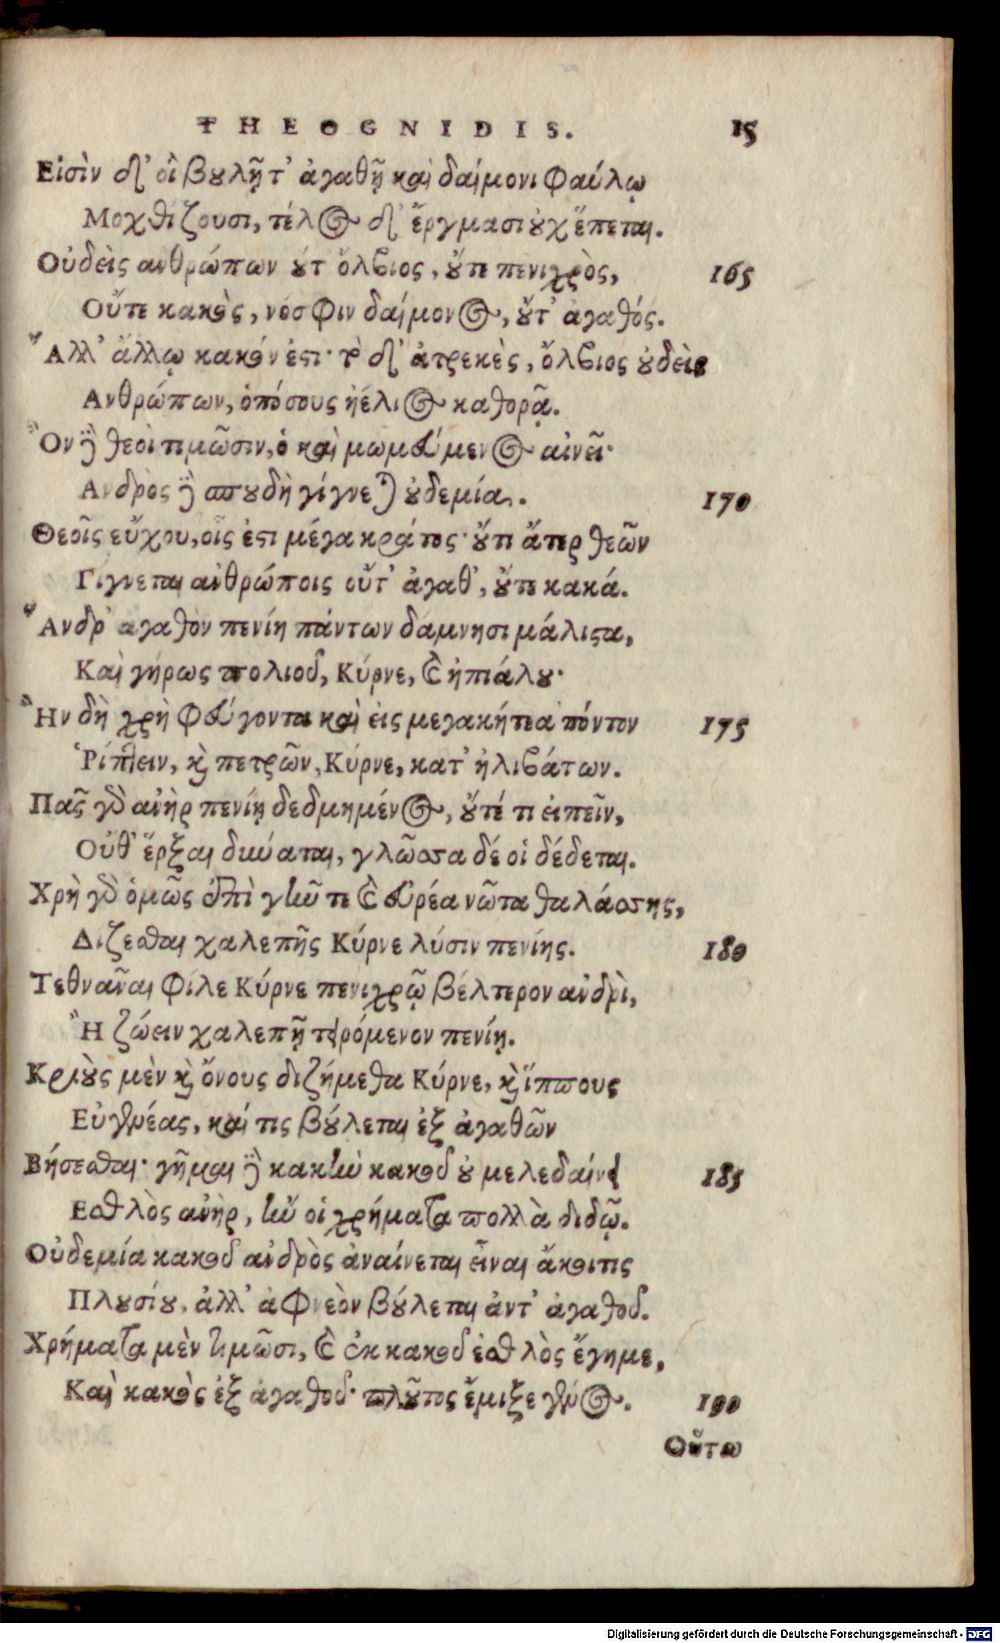 THEOGNIDIS. 15
Εἰσὶν δ' οἳ βουλῇ τ' ἀγαθῇ καὶ δαίμονι φαύλῳ
Μοχθίζουσι, τέλος δ' ἔργμασι οὐχ ἕπεται.
Οὐδεὶς ανθρώπων οὔτ ὄλβιος, οὔτε πενιχρὸς, 165
Οὔτε κακὸς, νόσφιν δαίμονος, οὔτ' ἀγαθός.
Ἄλλ' ἄλλῳ κακόν ἐστι· τὸ δ' ἀτρεκὲς, ὄλβιος οὐδεὶς
Ανθρώπων, ὁπόσους ἠέλιος καθορᾷ.
Ὃν δὲ θεοὶ τιμῶσιν, ὁ καὶ μωμεύμενος αἰνεῖ·
Ανδρὸς δὲ σπουδὴ γίγνεται οὐδεμία. 170
Θεοῖς εὔχου, οἷς ἐστι μέγα κράτος· οὔτι ἄτερ θεῶν
Γίγνεται ανθρώποις οὔτ' ἀγαθ', οὔτε κακά.
Ἄνδρ' ἀγαθὸν πενίη πάντων δάμνησι μάλιστα,
Καὶ γήρως πολιοῦ, Κύρνε, καὶ ἠπιάλου·
Ἣν δὴ χρὴ φεύγοντα καὶ εἰς μεγακήτεα πόντον 175
Ῥίπτειν, καὶ πετρῶν, Κύρνε, κατ' ἠλιβάτων.
Πᾶς γὰρ ἀνὴρ πενίῃ δεδμημένος, οὔτέ τι εἰπεῖν,
Οὔθ' ἔρξαι δύναται, γλῶσσα δέ οἱ δέδεται.
Χρὴ γὰρ ὁμῶς ἐπὶ γῆν τε καὶ εὐρέα νῶτα θαλάσσης,
Δίζεσθαι χαλεπῆς Κύρνε λύσιν πενίης. 180
Τεθνᾶναι φίλε Κύρνε πενιχρῷ βέλτερον ανδρὶ,
Ἢ ζώειν χαλεπῇ τειρόμενον πενίῃ.
Κριοὺς μὲν καὶ ὄνους διζήμεθα Κύρνε, καὶ ἵππους
Εὐγενέας, καί τις βούλεται ἐξ ἀγαθῶν
Βήσεσθαι· γῆμαι δὲ κακὴν κακοῦ οὐ μελεδαίνει 185
Εσθλὸς ανὴρ, ἤν οἱ χρήματα πολλὰ διδῷ.
Οὐδεμία κακοῦ ανδρὸς ἀναίνεται εἶναι ἄκοιτις
Πλουσίου, ἀλλ' ἀφνεὸν βούλεται ἀντ' ἀγαθοῦ.
Χρήματα μὲν τιμῶσι, καὶ ἐκ κακοῦ ἐσθλὸς ἔγημε,
Καὶ κακὸς ἐξ ἀγαθοῦ· πλοῦτος ἔμιξε γένος. 190
Οὕτω
Digitalisierung gefördert durch die Deutsche Forschungsgemeinschaft - DFG